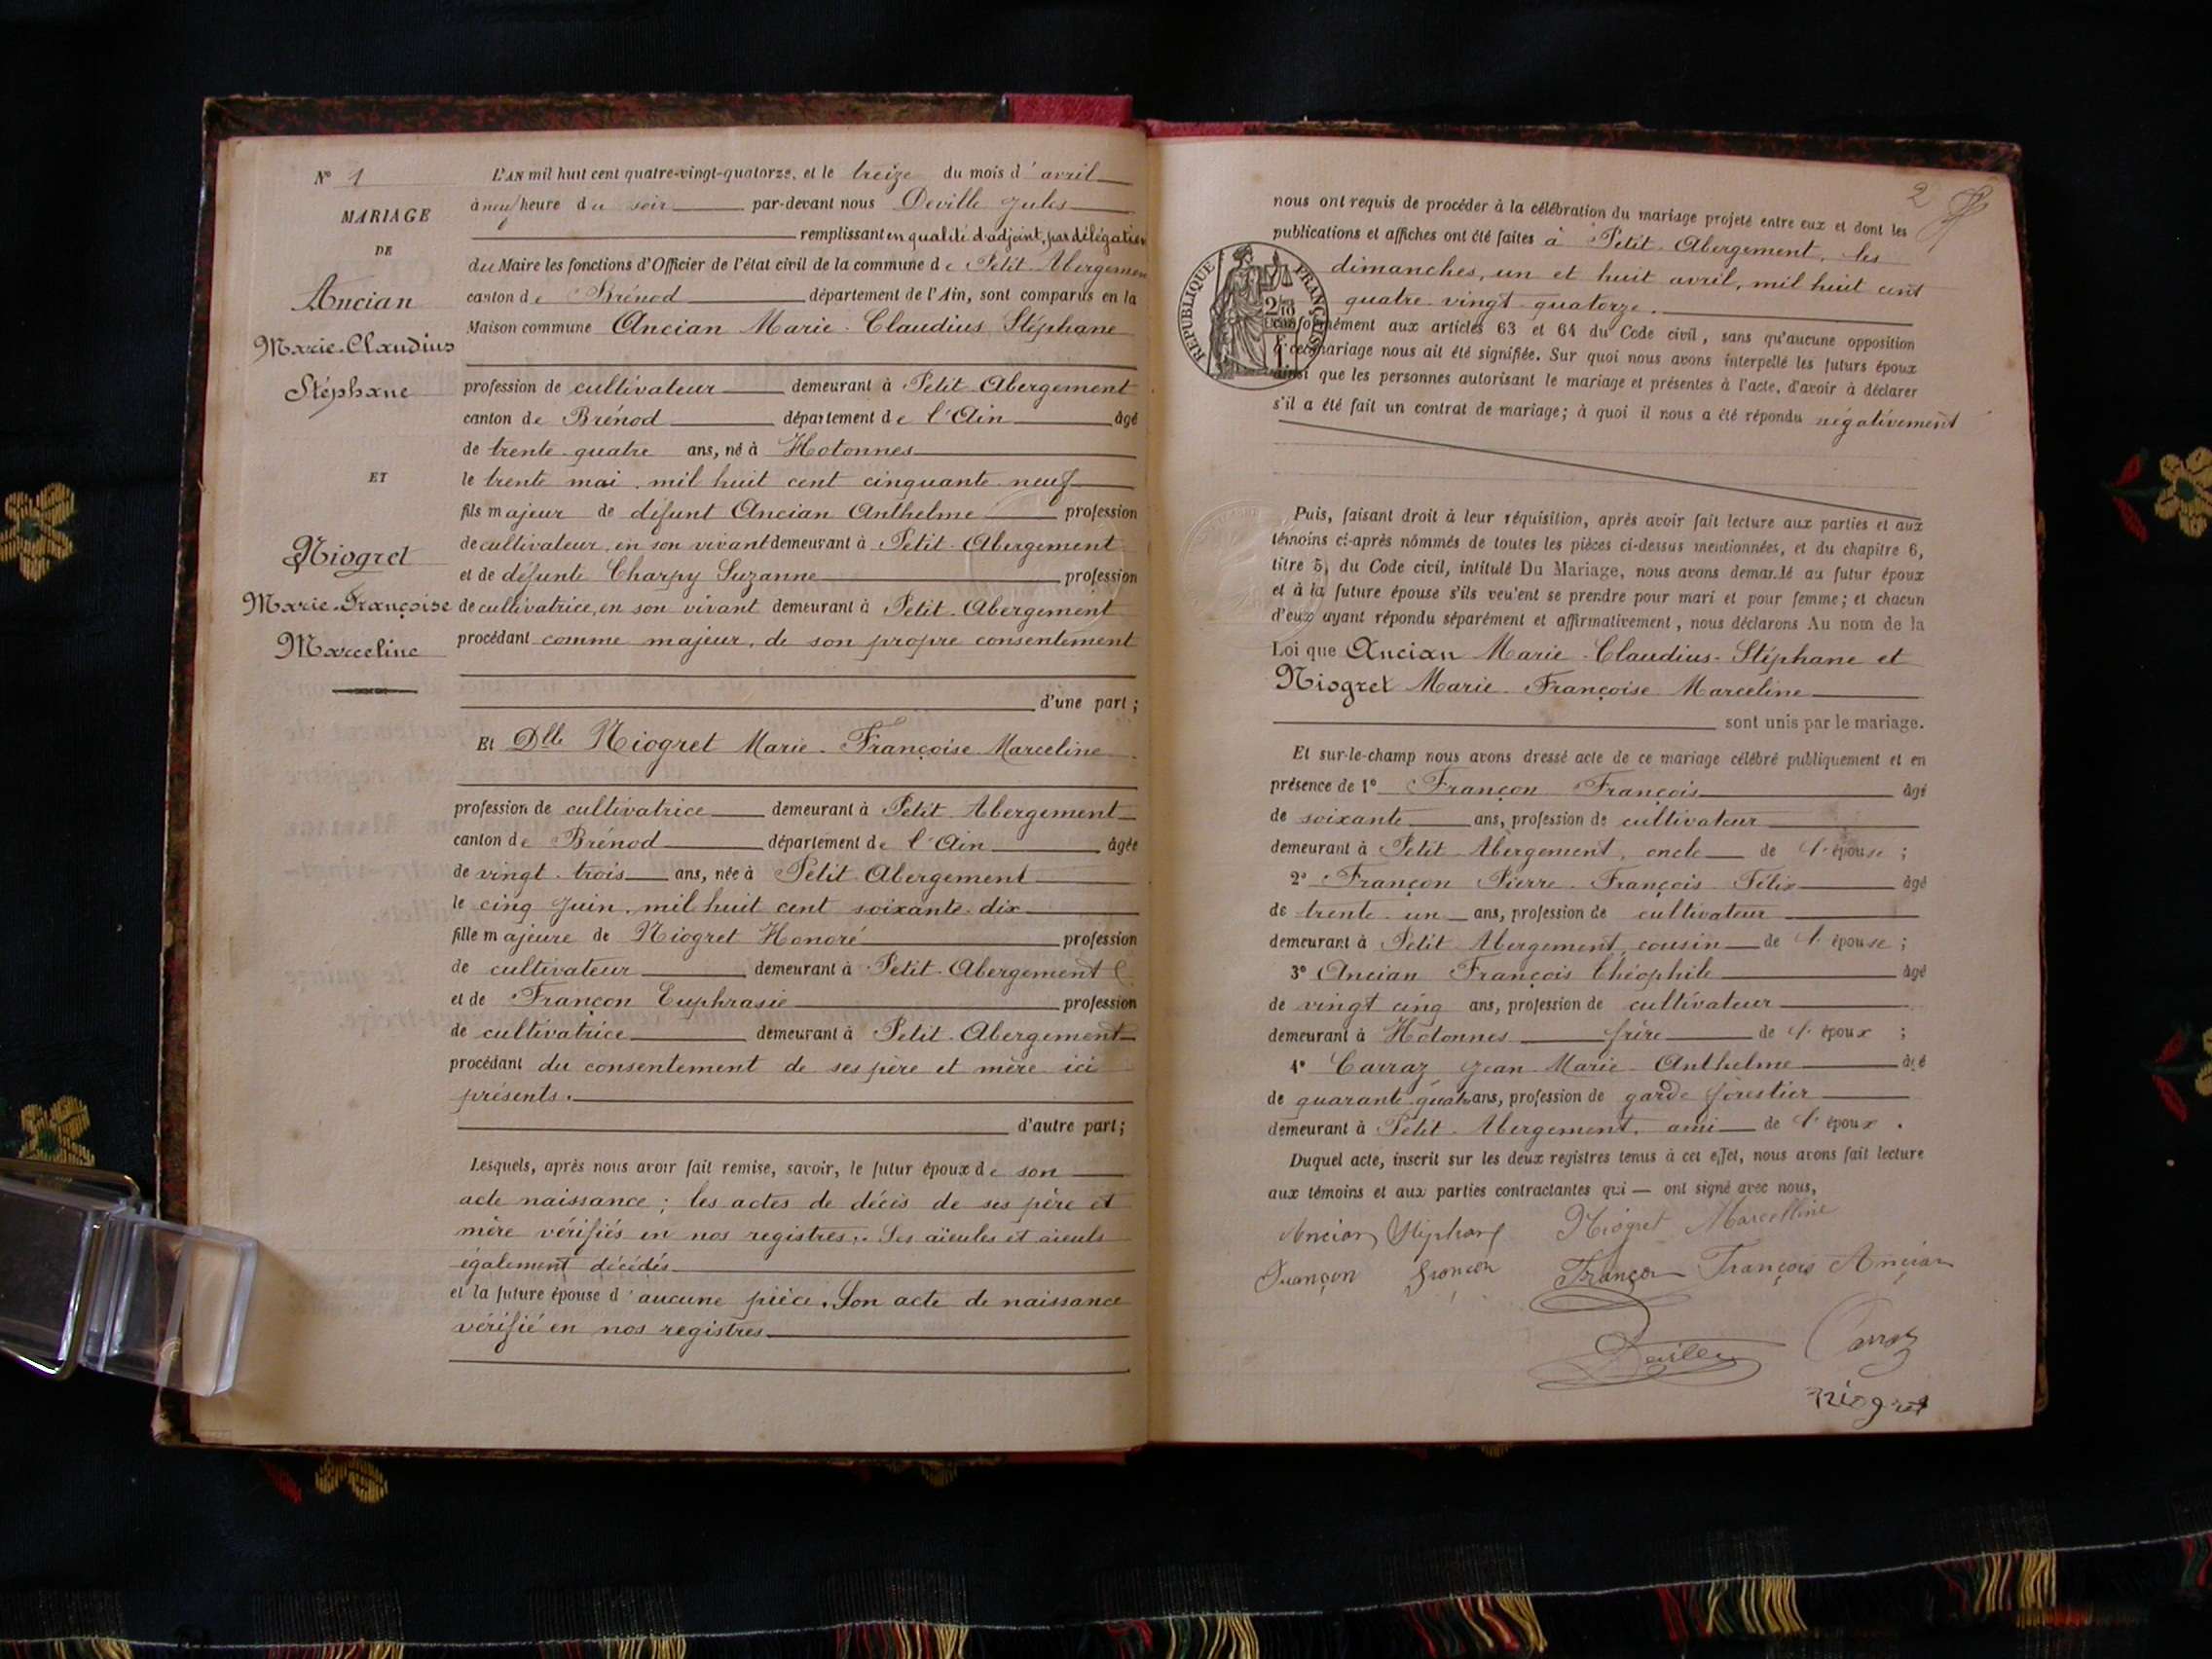 N° 1
MARIAGE
DE
Ancian
Marie-Claudius
Stéphane
ET
Niogret
Marie-Françoise
Marceline
L'AN mil huit cent quatre-vingt-quatorze, et le treize du mois d'avril
à neuf heure du soir par-devant nous Deville Jules
remplissant en qualité d'adjoint, par délégation
du Maire les fonctions d'Officier de l'état civil de la commune de Petit-Abergement
canton de Brénod département de l'Ain, sont comparus en la
Maison commune Ancian Marie-Claudius Stéphane
profession de cultivateur demeurant à Petit-Abergement
canton de Brénod département de l'Ain âgé
de trente-quatre ans, né à Hotonnes
le trente mai, mil huit cent cinquante-neuf
fils majeur de défunt Ancian Anthelme profession
de cultivateur, en son vivant demeurant à Petit-Abergement
et de défunte Charpy Suzanne profession
de cultivatrice, en son vivant demeurant à Petit-Abergement
procédant comme majeur, de son propre consentement
d'une part;
Et Dlle Niogret Marie-Françoise Marceline
profession de cultivatrice demeurant à Petit-Abergement
canton de Brénod département de l'Ain âgée
de vingt-trois ans, née à Petit-Abergement
le cinq Juin, mil huit cent soixante-dix
fille majeure de Niogret Honoré profession
de cultivateur demeurant à Petit-Abergement
et de Françon Euphrasie profession
de cultivatrice demeurant à Petit-Abergement
procédant du consentement de ses père et mère ici
présents.
d'autre part;
Lesquels, après nous avoir fait remise, savoir, le futur époux de son
acte naissance; les actes de décès de ses père et
mère vérifiés en nos registres. Ses aïeules et aïeuls
également décédés
et la future épouse d'aucune pièce. Son acte de naissance
vérifié en nos registres
2
nous ont requis de procéder à la célébration du mariage projeté entre eux et dont les
publications et affiches ont été faites à Petit-Abergement, les
dimanches, un et huit avril, mil huit cent
quatre-vingt-quatorze.
RÉPUBLIQUE FRANÇAISE
conformément aux articles 63 et 64 du Code civil, sans qu'aucune opposition
à ce mariage nous ait été signifiée. Sur quoi nous avons interpellé les futurs époux
ainsi que les personnes autorisant le mariage et présentes à l'acte, d'avoir à déclarer
s'il a été fait un contrat de mariage; à quoi il nous a été répondu négativement
Puis, faisant droit à leur réquisition, après avoir fait lecture aux parties et aux
témoins ci-après nommés de toutes les pièces ci-dessus mentionnées, et du chapitre 6,
titre 5, du Code civil, intitulé Du Mariage, nous avons demandé au futur époux
et à la future épouse s'ils veulent se prendre pour mari et pour femme; et chacun
d'eux ayant répondu séparément et affirmativement, nous déclarons Au nom de la
Loi que Ancian Marie-Claudius-Stéphane et
Niogret Marie-Françoise Marceline
sont unis par le mariage.
Et sur-le-champ nous avons dressé acte de ce mariage célébré publiquement et en
présence de 1° Françon François âgé
de soixante ans, profession de cultivateur
demeurant à Petit-Abergement, oncle de l'épouse;
2° Françon Pierre-François-Félix âgé
de trente-un ans, profession de cultivateur
demeurant à Petit-Abergement, cousin de l'épouse;
3° Ancian François Théophile âgé
de vingt cinq ans, profession de cultivateur
demeurant à Hotonnes frère de l'époux;
4° Carraz Jean-Marie-Anthelme âgé
de quarante-quatre ans, profession de garde forestier
demeurant à Petit-Abergement, ami de l'époux.
Duquel acte, inscrit sur les deux registres tenus à cet effet, nous avons fait lecture
aux témoins et aux parties contractantes qui — ont signé avec nous,
Ancian Stéphane Niogret Marcelline
Françon Françon Françon François Ancian
Deville Carraz
Niogret